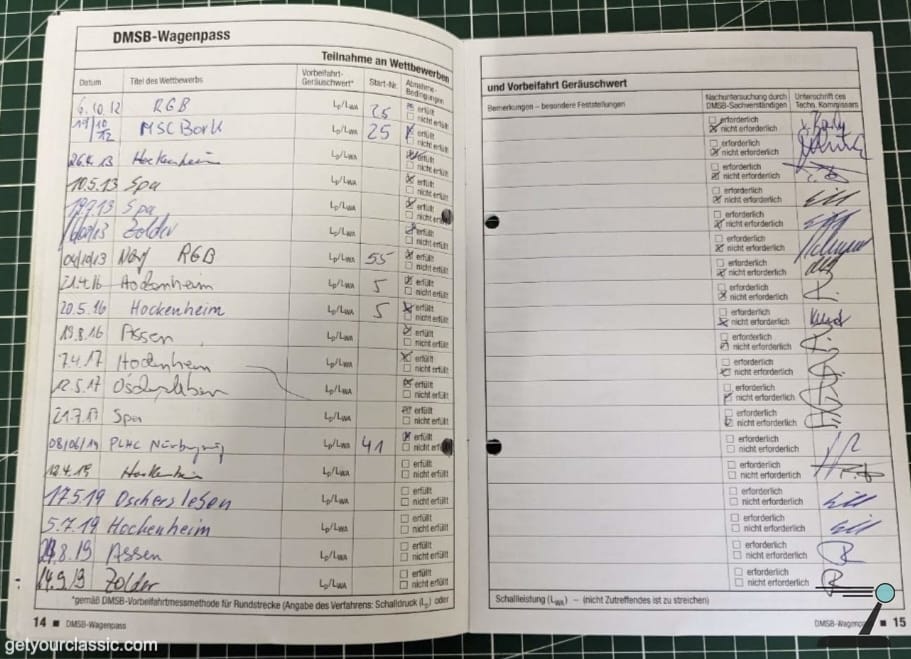 DMSB-Wagenpass
Teilnahme an Wettbewerben
Datum Titel des Wettbewerbs Vorbeifahrt-Geräuschwert* Start-Nr. Abnahme-Bedingungen
6.10.12 RGB Lp/LWA 25 erfüllt nicht erfüllt
MSC Bork Lp/LWA 25 erfüllt nicht erfüllt
26.4.13 Hockenheim Lp/LWA erfüllt nicht erfüllt
10.5.13 Spa Lp/LWA erfüllt nicht erfüllt
Spa Lp/LWA erfüllt nicht erfüllt
Zolder Lp/LWA erfüllt nicht erfüllt
04/10/13 RGB Lp/LWA 55 erfüllt nicht erfüllt
21.4.16 Hockenheim Lp/LWA 5 erfüllt nicht erfüllt
20.5.16 Hockenheim Lp/LWA 5 erfüllt nicht erfüllt
19.8.16 Assen Lp/LWA erfüllt nicht erfüllt
7.4.17 Hockenheim Lp/LWA erfüllt nicht erfüllt
12.5.17 Oschersleben Lp/LWA erfüllt nicht erfüllt
21.7.17 Spa Lp/LWA erfüllt nicht erfüllt
08/06/19 PLHC Nürburgring Lp/LWA 41 erfüllt nicht erfüllt
12.4.19 Hockenheim Lp/LWA erfüllt nicht erfüllt
17.5.19 Oschersleben Lp/LWA erfüllt nicht erfüllt
5.7.19 Hockenheim Lp/LWA erfüllt nicht erfüllt
Assen Lp/LWA erfüllt nicht erfüllt
Zolder Lp/LWA erfüllt nicht erfüllt
*gemäß DMSB-Vorbeifahrtmessmethode für Rundstrecke (Angabe des Verfahrens: Schalldruck (Lp) oder
14 ■ DMSB-Wagenpass
und Vorbeifahrt Geräuschwert
Bemerkungen – besondere Feststellungen Nachuntersuchung durch DMSB-Sachverständigen Unterschrift des Techn. Kommissars
erforderlich
nicht erforderlich
erforderlich
nicht erforderlich
erforderlich
nicht erforderlich
erforderlich
nicht erforderlich
erforderlich
nicht erforderlich
erforderlich
nicht erforderlich
erforderlich
nicht erforderlich
erforderlich
nicht erforderlich
erforderlich
nicht erforderlich
erforderlich
nicht erforderlich
erforderlich
nicht erforderlich
erforderlich
nicht erforderlich
erforderlich
nicht erforderlich
erforderlich
nicht erforderlich
erforderlich
nicht erforderlich
erforderlich
nicht erforderlich
erforderlich
nicht erforderlich
erforderlich
nicht erforderlich
erforderlich
nicht erforderlich
Schalleistung (LWA) – (nicht Zutreffendes ist zu streichen)
■ 15
getyourclassic.com